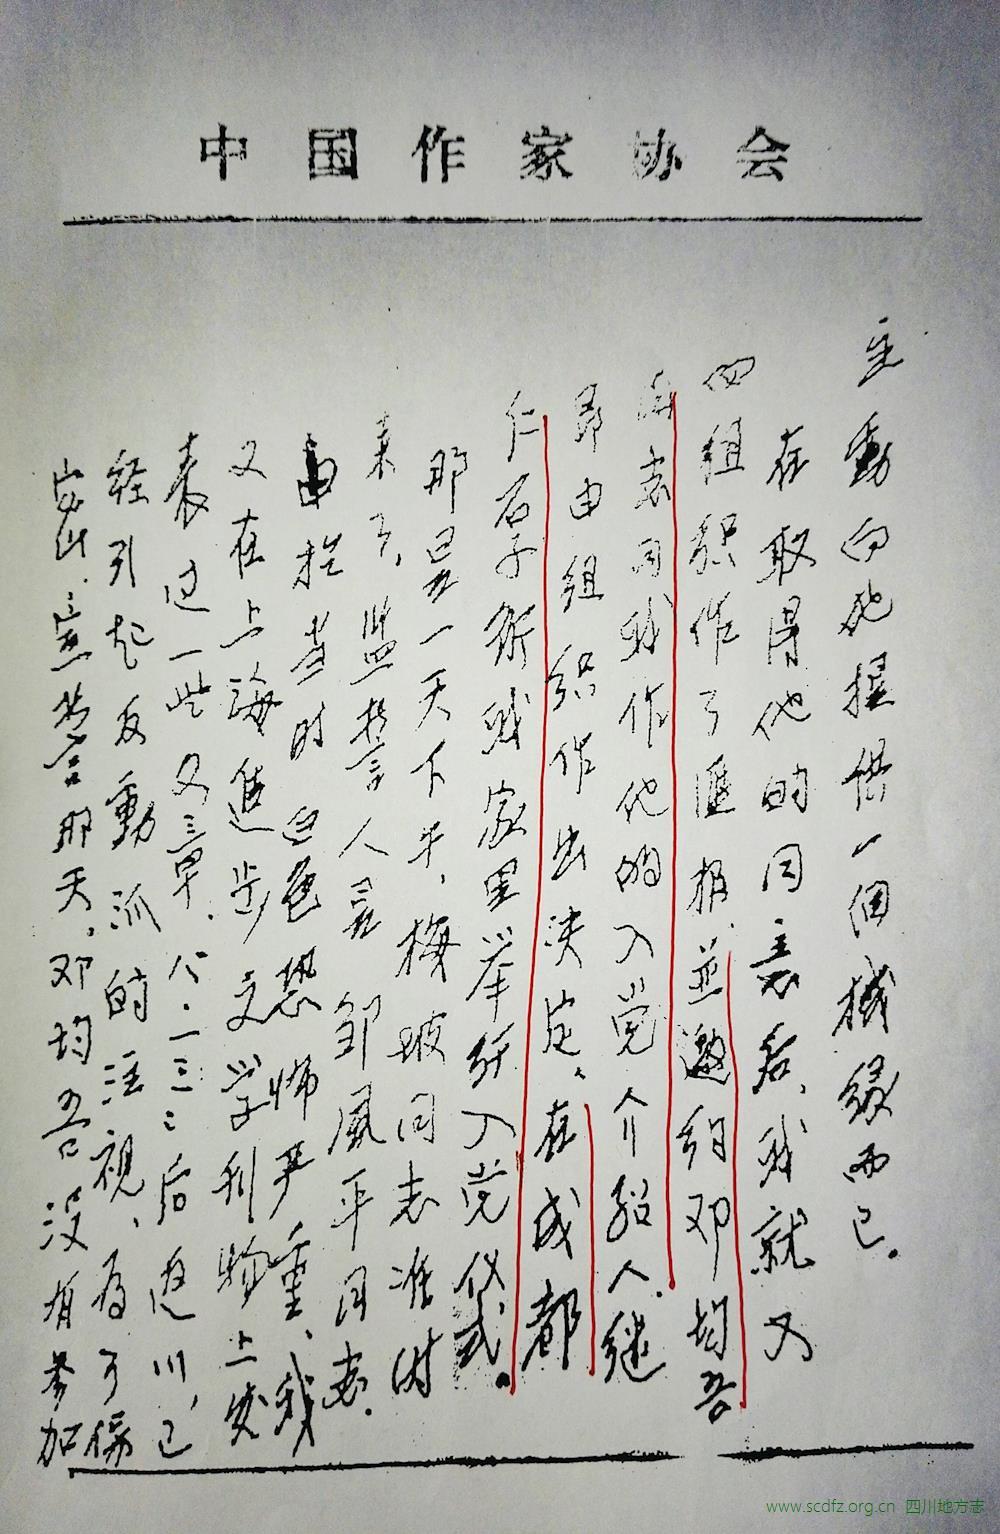 中国作家协会
主動向他提供一個機緣而已。
在取得他的同意后、我就又
向组织作了匯报、並邀约邓均吾
同志同我作他的入党介紹人.继
即由组织作出决定。在成都
仁石子街我家里举行入党仪式。
那是一天下午，梅坡同志准时
来了，监誓人是邹風平同志.
由於当时白色恐怖严重、我
又在上海進步文学刊物上发
表过一些文章、八·一三后返川,已
经引起反動派的注视、為了保
密、宣誓那天,邓均吾没有参加
www.scdfz.org.cn 四川地方志